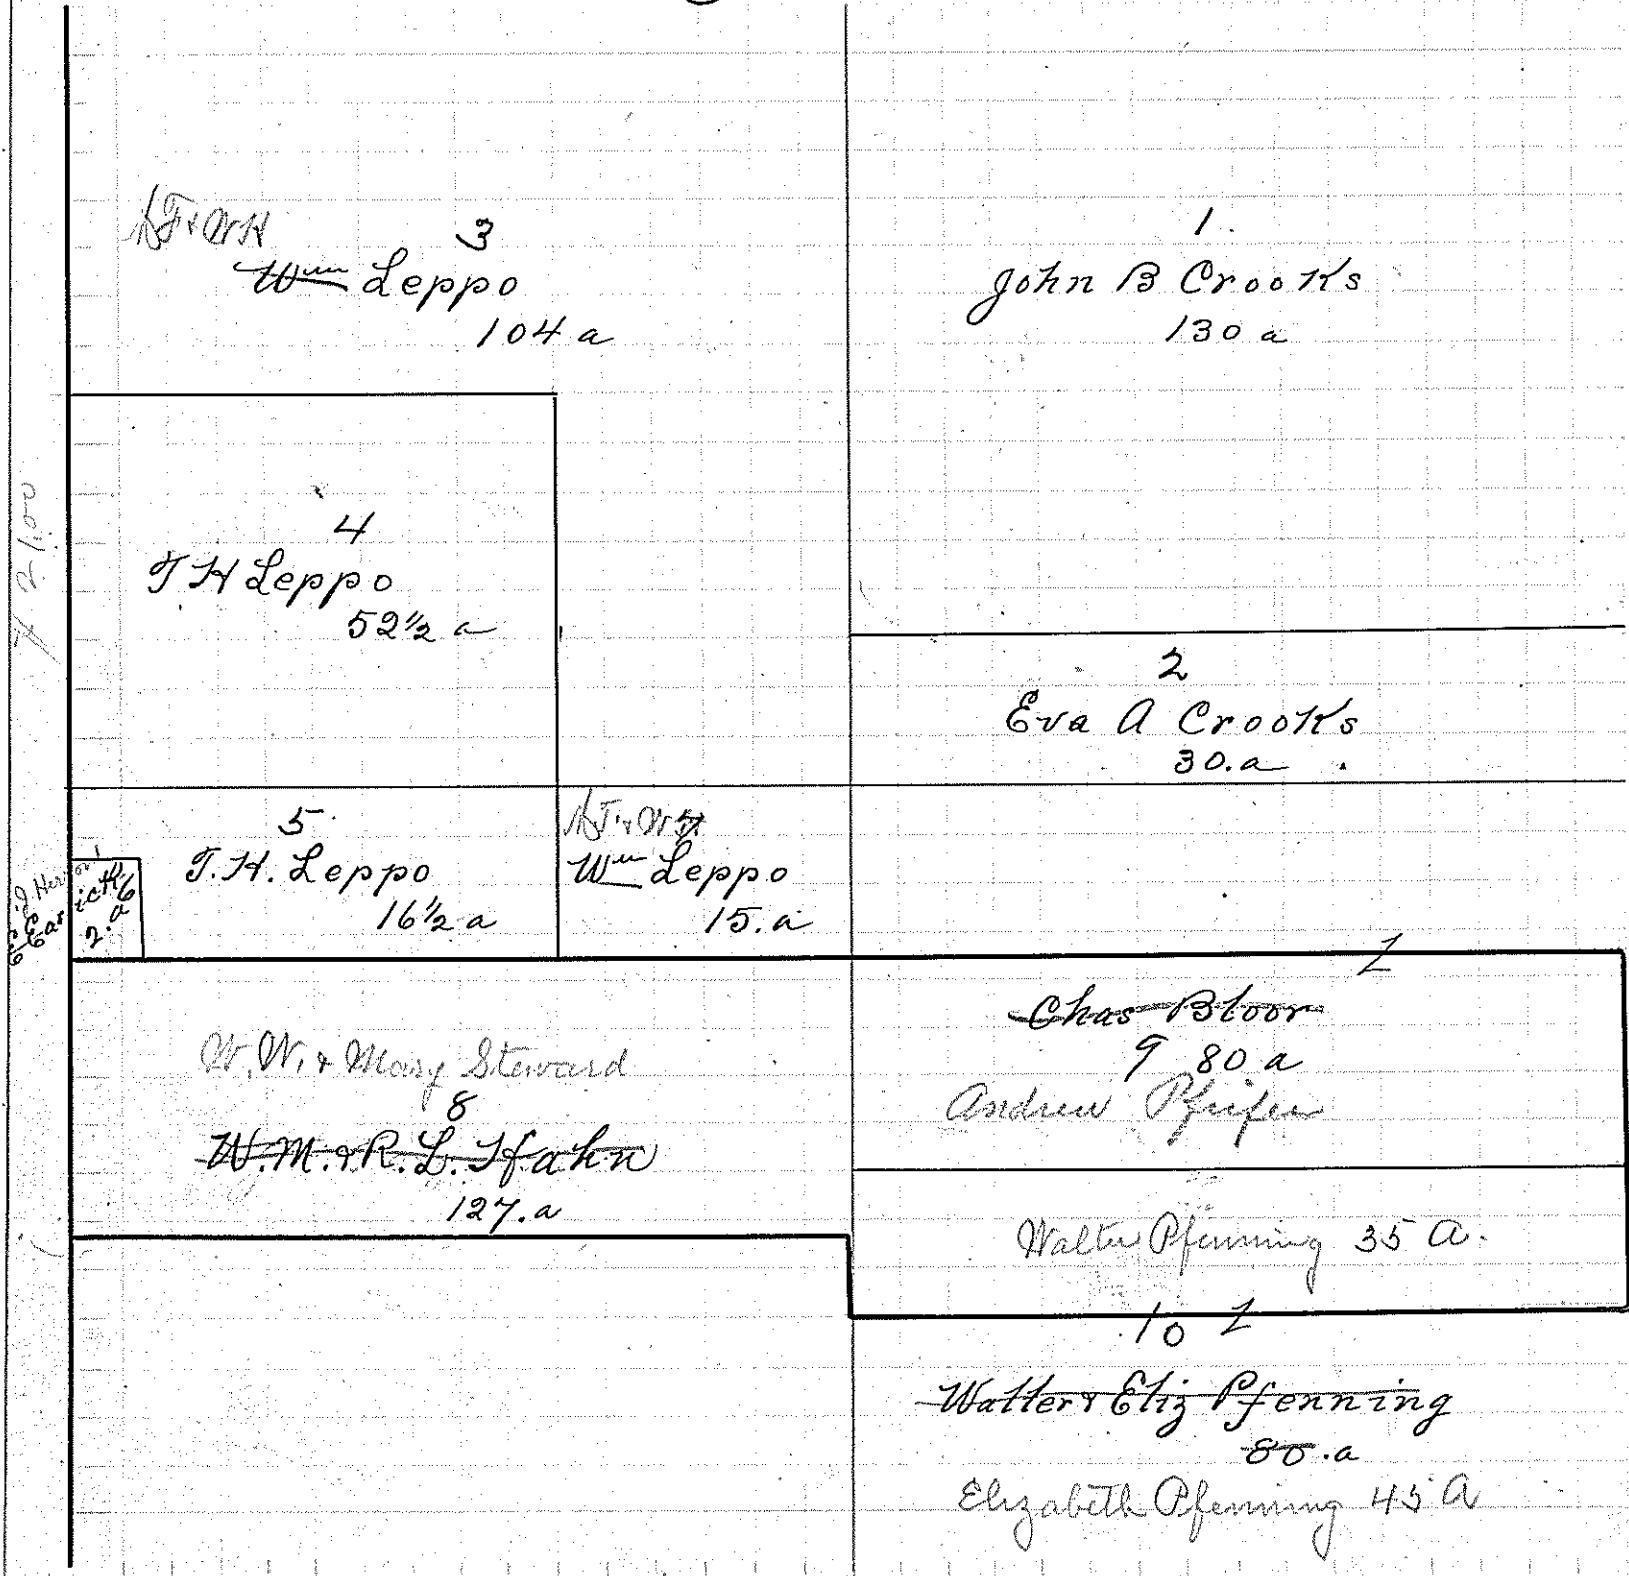 3
Wm Leppo
104 a
1.
John B Crooks
130 a
4
T H Leppo
52½ a
2
Eva A Crooks
30.a
5
T. H. Leppo
16½ a
7
Wm Leppo
15.a
6
2.a
W. W. & Mary Steward
8
W.M. & R. L. Hahn
127.a
Chas Bloor
9 80 a
Andrew Pfeifer
Walter Pfenning 35 A.
10
Walter & Eliz Pfenning
80.a
Elizabeth Pfenning 45 A